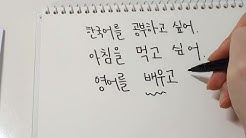 한국어를 공부하고 싶어.
아침을 먹고 싶어.
영어를 배우고